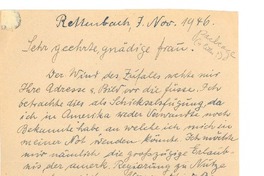 Rettenbach, 7. Nov. 1946.
Sehr geehrte, gnädige Frau!
Der Wind des Zufalles wehte mir
Ihre Adresse u. Bild vor die füsse. Ich
betrachte dies als Schicksalsfügung, da
ich in Amerika weder Verwandte noch
Bekannte habe an welche ich mich in
meiner Not wenden könnte. Ich möchte
mir nämlich die großzügige Erlaub-
nis der amerik. Regierung zu Nütze